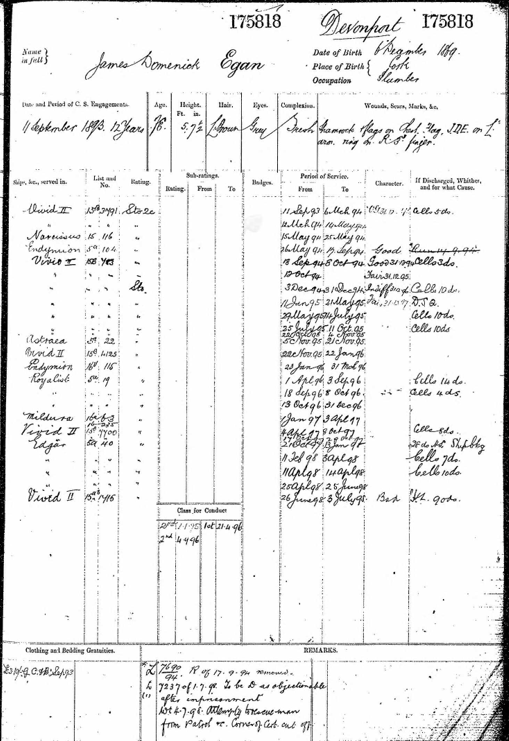 175818 Devonport 175818
Name in full } James Domenick Egan
Date of Birth 6 December 1869
Place of Birth { Cork
Occupation Plumber
Date and Period of C. S. Engagements. Age. Height. Ft. in. Hair. Eyes. Complexion. Wounds, Scars, Marks, &c.
11 September 1893. 12 Years 18. 5.7½ L Brown Grey Fresh Hammock flags on Chest. Flag, J.D.E. on L
arm. ring on R 3rd finger.
Ships, &c., served in. List and No. Rating. Sub-ratings. Rating. From To Badges. Period of Service. From To Character. If Discharged, Whither, and for what Cause.
Vivid II 15A 3491 Sto 2c 11 Sep 93 6 Mch 94 Cells 5 ds.
" " 11 Mch 94 14 May 94
Narcissus 15 116 " 15 May 94 25 May 94
Endymion 5A 104 " 26 May 94 19 Sep 94 Good
Vivid II " 13 Sep 94 8 Oct 94 Good 31.12.94 Cells 3 ds.
" 12 Oct 94 Fair 31.12.95
" Sto. 3 Dec 94 31 Dec 94 Indifft Cells 10 ds.
" 11 Jan 95 21 May 95 D.S.Q.
" 29 May 95 14 July 95 Cells 10 ds.
" 25 July 95 11 Oct 95 Cells 10 ds
Astraea 22 " 5 Nov. 95 21 Nov. 95
Vivid II 15A 4123 " 22 Nov. 95 22 Jan 96
Endymion 115 " 23 Jan 96 31 Mch 96
Royalist 5A 19 " 1 Apl 96 3 Sep 96 Cells 14 ds.
" " 18 Sep 96 8 Oct 96 Cells 4 ds.
" " 13 Oct 96 31 Dec 96
Mildura " 1 Jan 97 3 Apl 97
Vivid II 15A 4400 " 4 Apl 97 8 Oct 97 Cells 8 ds.
Edgar 5A 40 " 21 Oct 97
" " 11 Feb 98 3 Apl 98 Cells 7 ds.
" " 11 Apl 98 14 Apl 98 Cells 10 ds.
" " 25 Apl 98 25 June 98
Vivid II 15A " 26 June 98 3 July 98 Bad 90 ds.
Class for Conduct
2nd 1.1.95 1st 21.4.96
2nd 4 9 96
Clothing and Bedding Gratuities. REMARKS.
L 7690/94. R of 17.9.94 removed.
L 7237 of 1.7.98 To be D as objectionable
after imprisonment
Attempts to rescue man
from Patrol &c. Corner of Cert. cut off